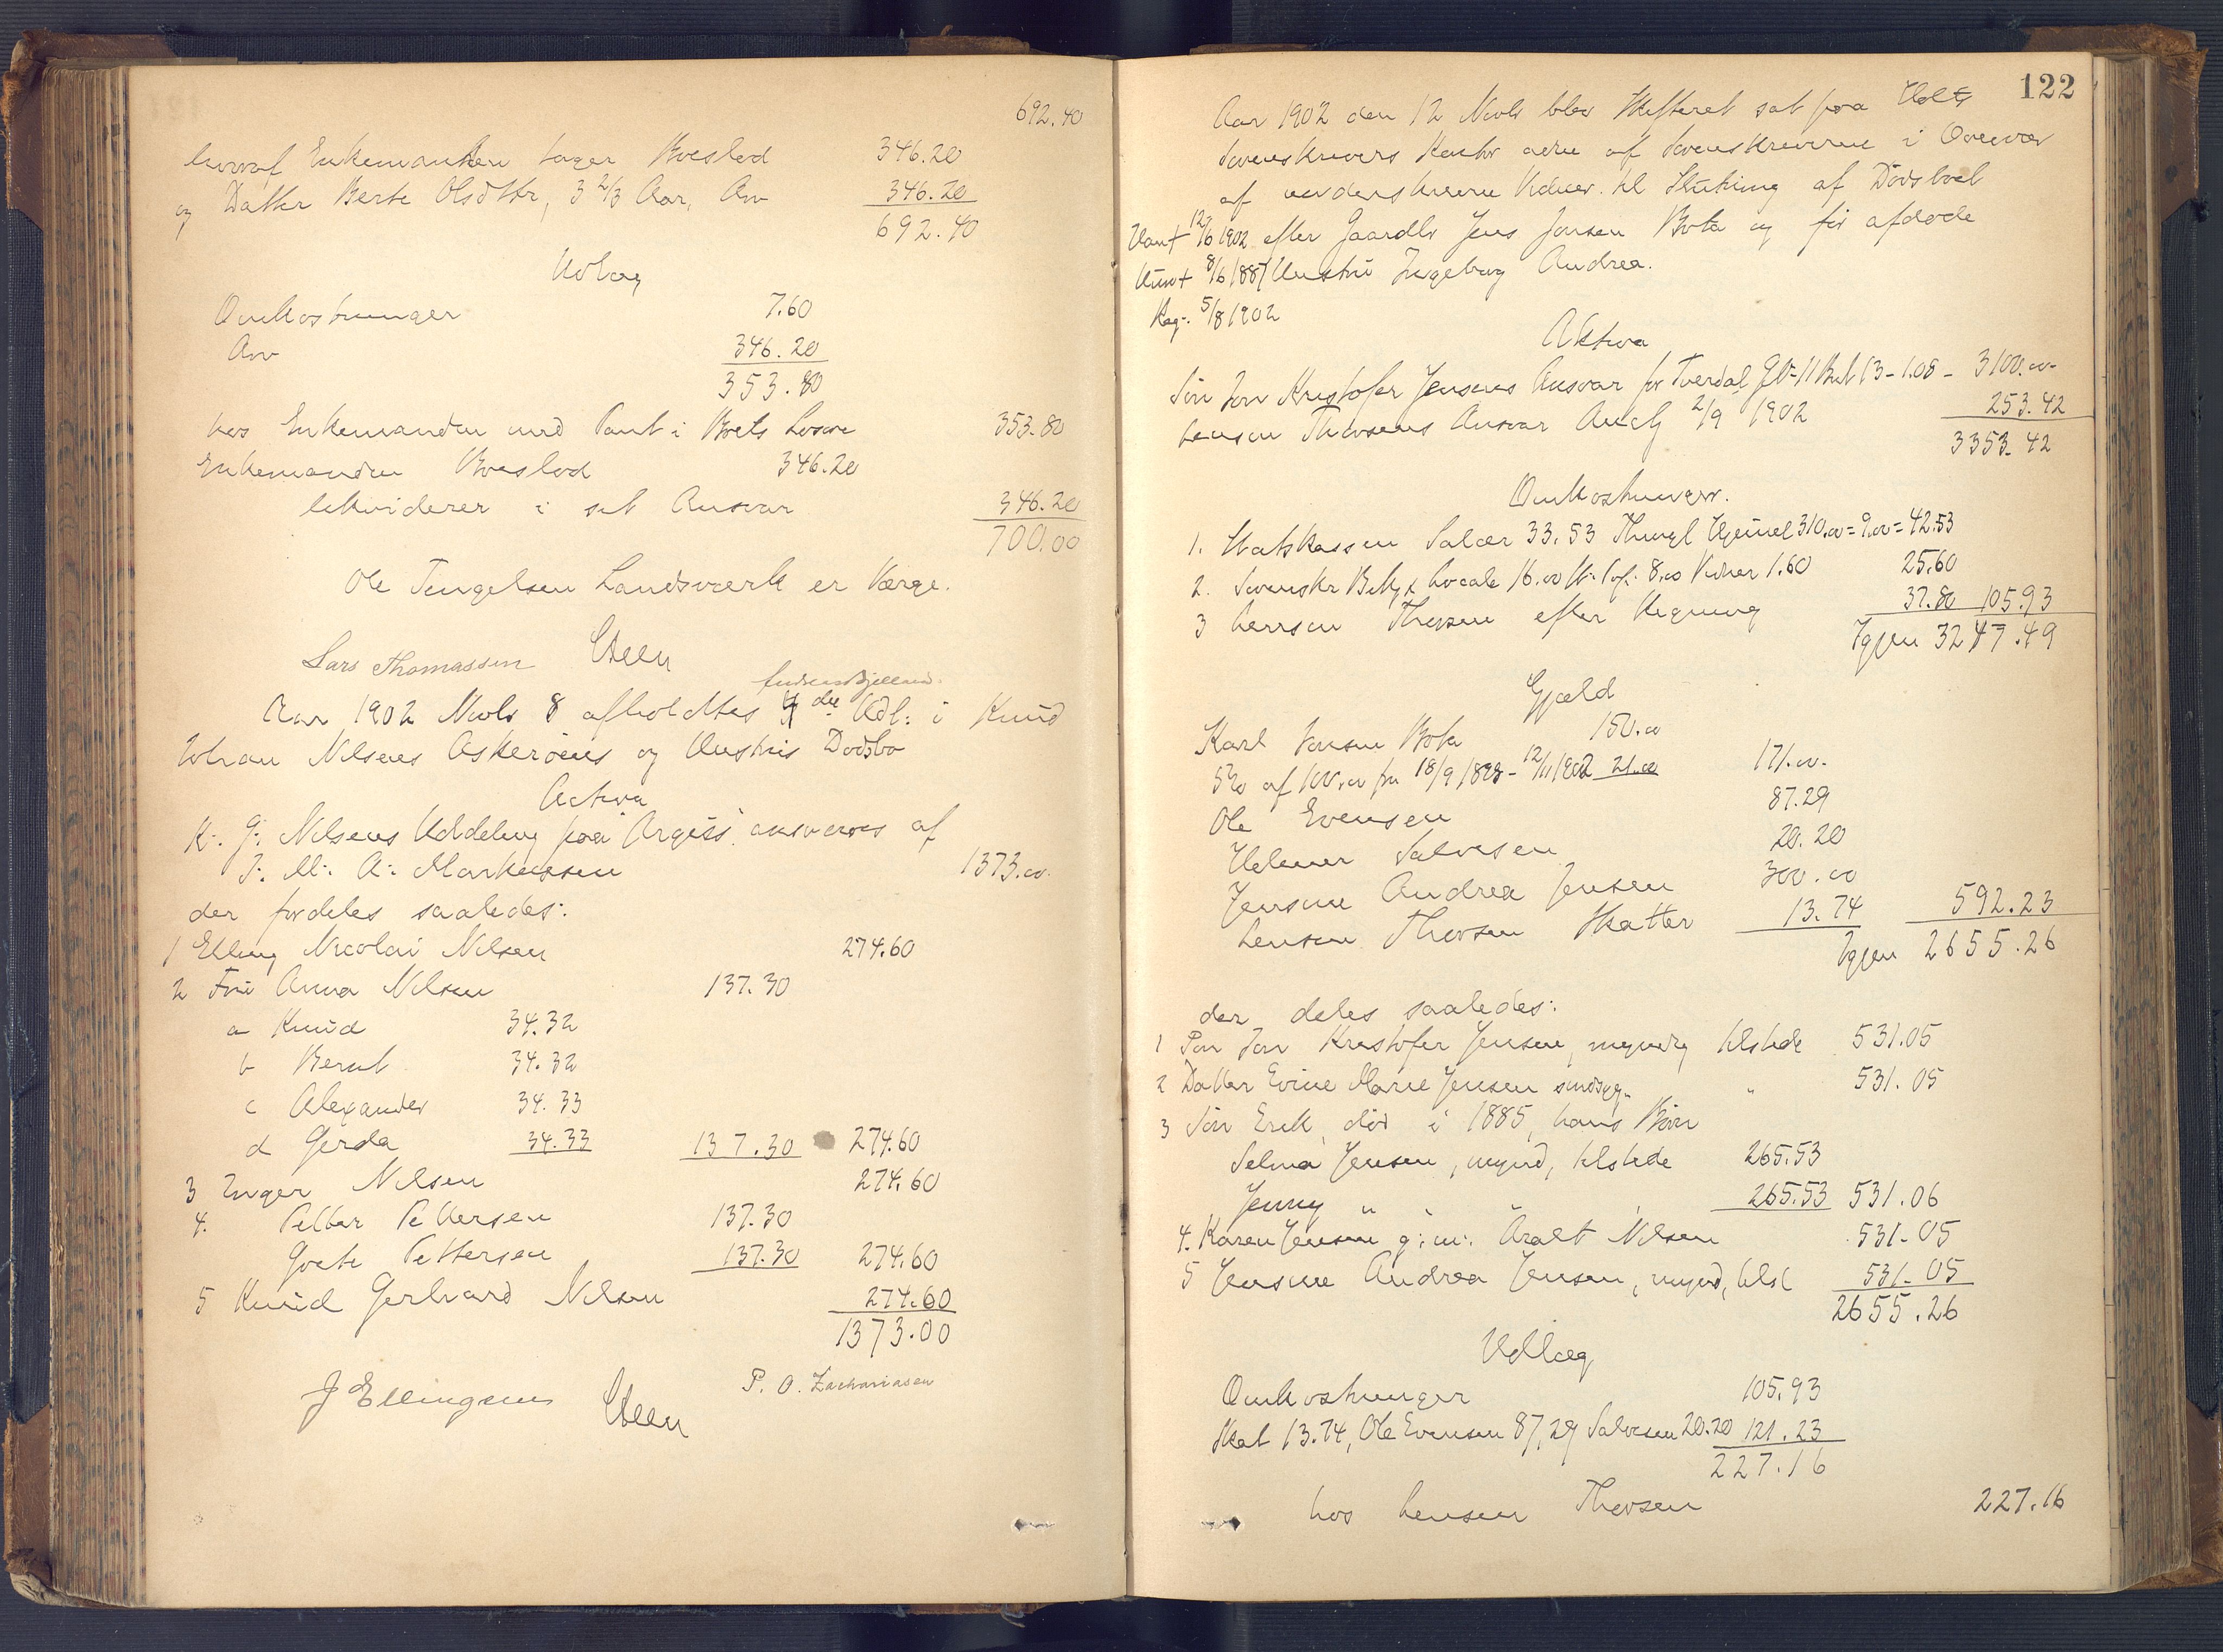 692.40
hvoraf Enkemanden tager Boeslod 346.20
og Datter Berte Olsdtr, 3 2/3 Aar, Arv 346.20
692.40
Udlæg
Omkostninger 7.60
Arv 346.20
353.80
hos Enkemanden med Pant i Boets Løsøre 353.80
Enkemanden Boeslod 346.20
likviderer i sit Ansvar 346.20
700.00
Ole Tengelsen Landsværk er Værge.
Lars Thomassen Steen
Aar 1902 Novbr 8 afholdtes de Udl: i Knud
Johan Nilsens Askerøens og Hustrus Dødsbo
Activa
K. G. Nilsens Uddeling paa ansvares af
J. M. A. Markussen 1373.00
der fordeles saaledes:
1 Elling Nicolai Nilsen 274.60
2 Fru Anna Nilsen 137.30
a Knud 34.32
b Bernt 34.32
c Alexander 34.33
d Gerda 34.33 137.30 274.60
3 Inger Nilsen 274.60
4. Petter Pettersen 137.30
Grete Pettersen 137.30 274.60
5 Knud Gerhard Nilsen 274.60
1373.00
J Ellingsen Steen P. O. Zachariasen
122
Aar 1902 den 12 Novbr blev Skifteret sat paa Holts
Sorenskrivers Kontor af Sorenskriveren i Overvær
af underskrevne Vidner til Slutning af Dødsboet
12/6 1902 efter Gaardbr Jens Jensen Bota og før afdøde
8/6 1887 Hustru Ingeborg Andrea.
Reg. 5/8 1902
Aktiva
Søn Jon Kristofer Jensens Ansvar for Tverdal G.No 11 Bno 13 - 1.08 - 3100.00
Lensm Thorsens Ansvar Auctj 2/9 1902 253.42
3353.42
Omkostninger.
1. Statskassen Salær 33.53 310.00 = 9.00 = 42.53
2. Sorenskr Locale 16.00 8.00 Vidner 1.60 25.60
3 Lensm Thorsen efter Regning 37.80 105.93
Igjen 3247.49
Gjæld
Karl Jensen Bota 150.00
5% af 100.00 fra 18/9 1898 - 12/11 1902 21.00 171.00
Ole Evensen 87.29
Helmer Salvesen 20.20
Jensine Andrea Jensen 300.00
Lensm Thorsen Skatter 13.74 592.23
Igjen 2655.26
der deles saaledes:
1 Søn Jon Kristofer Jensen, myndig tilstede 531.05
2 Datter Evine Marie Jensen sindssyg " 531.05
3 Søn Erik, død i 1885, hans Børn
Selma Jensen, mynd, tilstede 265.53
Jenny " " " 265.53 531.06
4. Karen Jensen g: m: Aralt Nilsen 531.05
5 Jensine Andrea Jensen, mynd, tilst 531.05
2655.26
Udlæg
Omkostninger 105.93
Skat 13.74, Ole Evensen 87,29 Salvesen 20.20 121.23
227.16
hos Lensm Thorsen 227.16